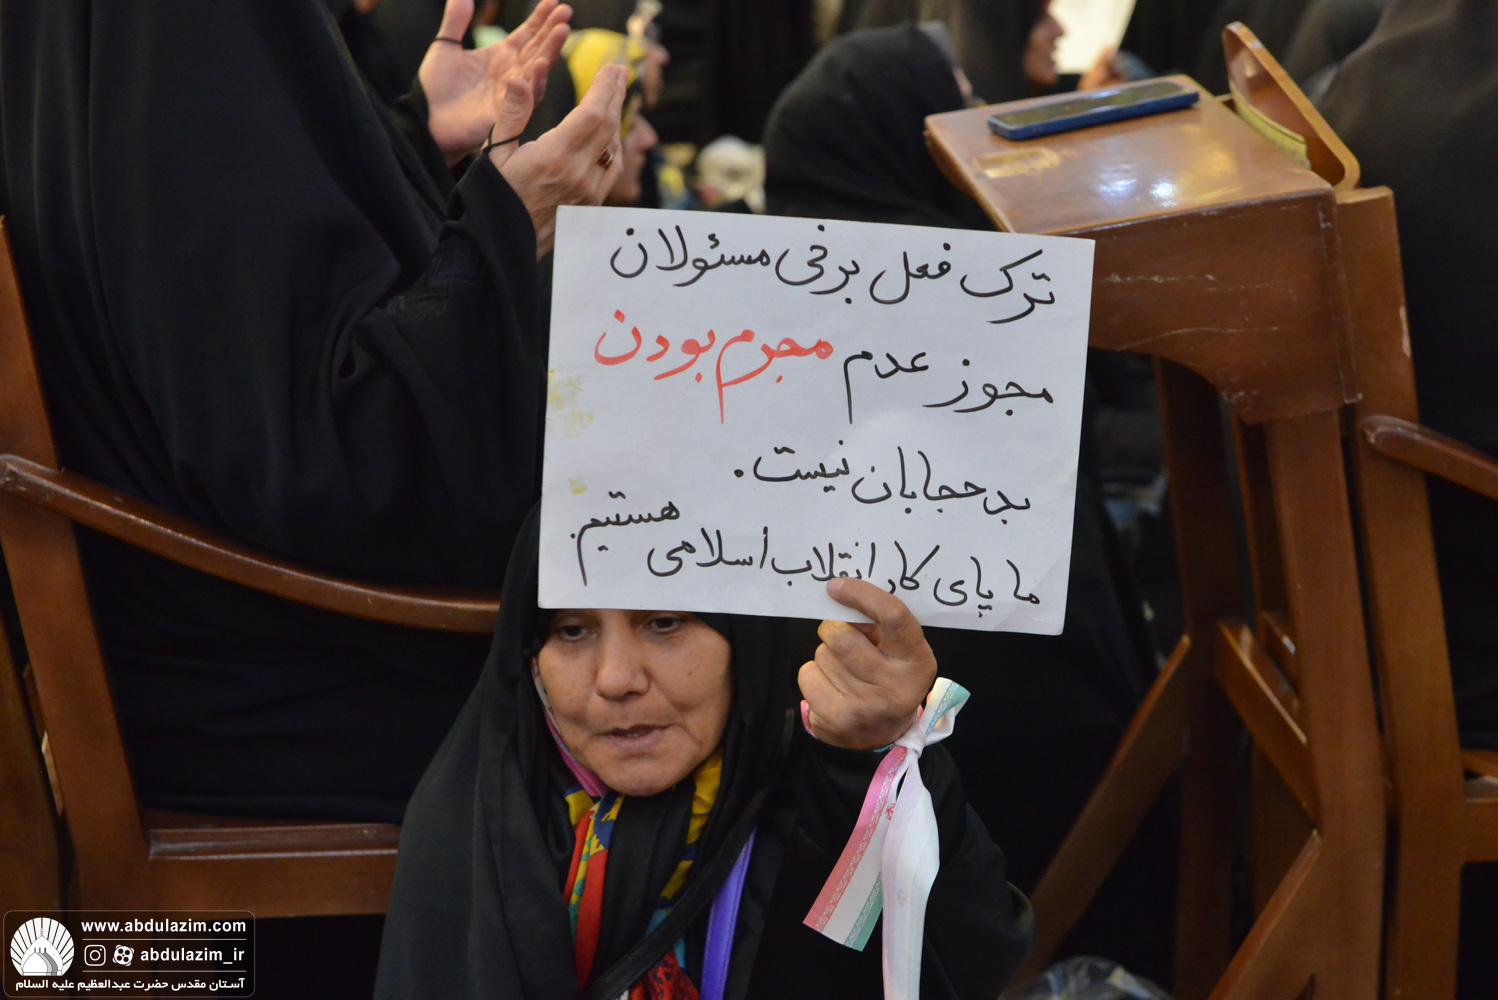 ترک فعل برخی مسئولان
مجوز عدم مجرم بودن
بدحجابان نیست.
ما پای کار انقلاب اسلامی هستیم
www.abdulazim.com
abdulazim_ir
آستان مقدس حضرت عبدالعظیم علیه السلام